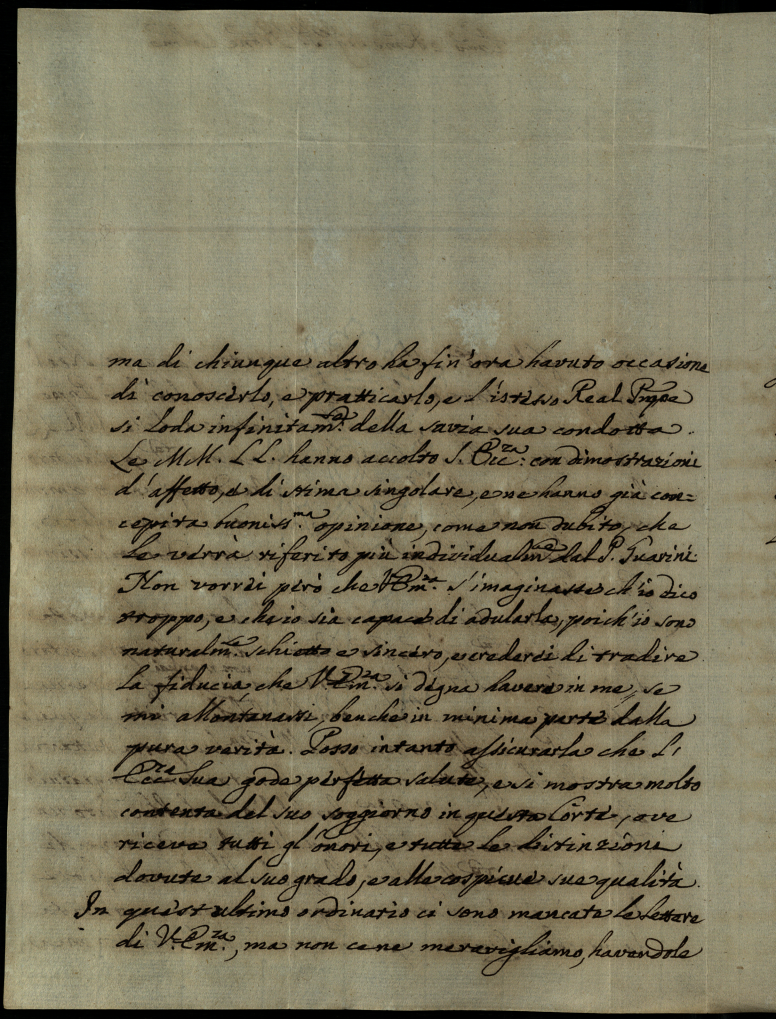 ma di chiunque altro ha fin'ora havuto occasione
di conoscerlo, e pratticarlo, e l'istesso Real Prnpe
si loda infinitam.te della savia sua condotta.
Le MM. LL. hanno accolto S. Ecc.za: con dimostrazioni
d'affetto, e di stima singolare, e ne hanno già con=
cepita buoniss.ma opinione, come non dubito, che
le verrà riferito più individualm.te dal P. Guarini.
Non vorrei però che V. Em.za s'imaginasse ch'io dico
troppo, e ch'io sia capace di adularla, poich'io sono
naturalm.te schietto e sincero, e crederei di tradire
la fiducia, che V. Em.za si degna havere in me, se
mi allontanassi, benche in minima parte dalla
pura verità. Posso intanto assicurarla che l'
Ecc.za Sua gode perfetta salute, e si mostra molto
contenta del suo soggiorno in questa Corte, ove
riceve tutti gl'onori, e tutte le distinzioni
dovute al suo grado, e alle cospicue sue qualità.
In quest'ultimo ordinario ci sono mancate le lettere
di V. Em.za, ma non ce ne meravigliamo, havendole